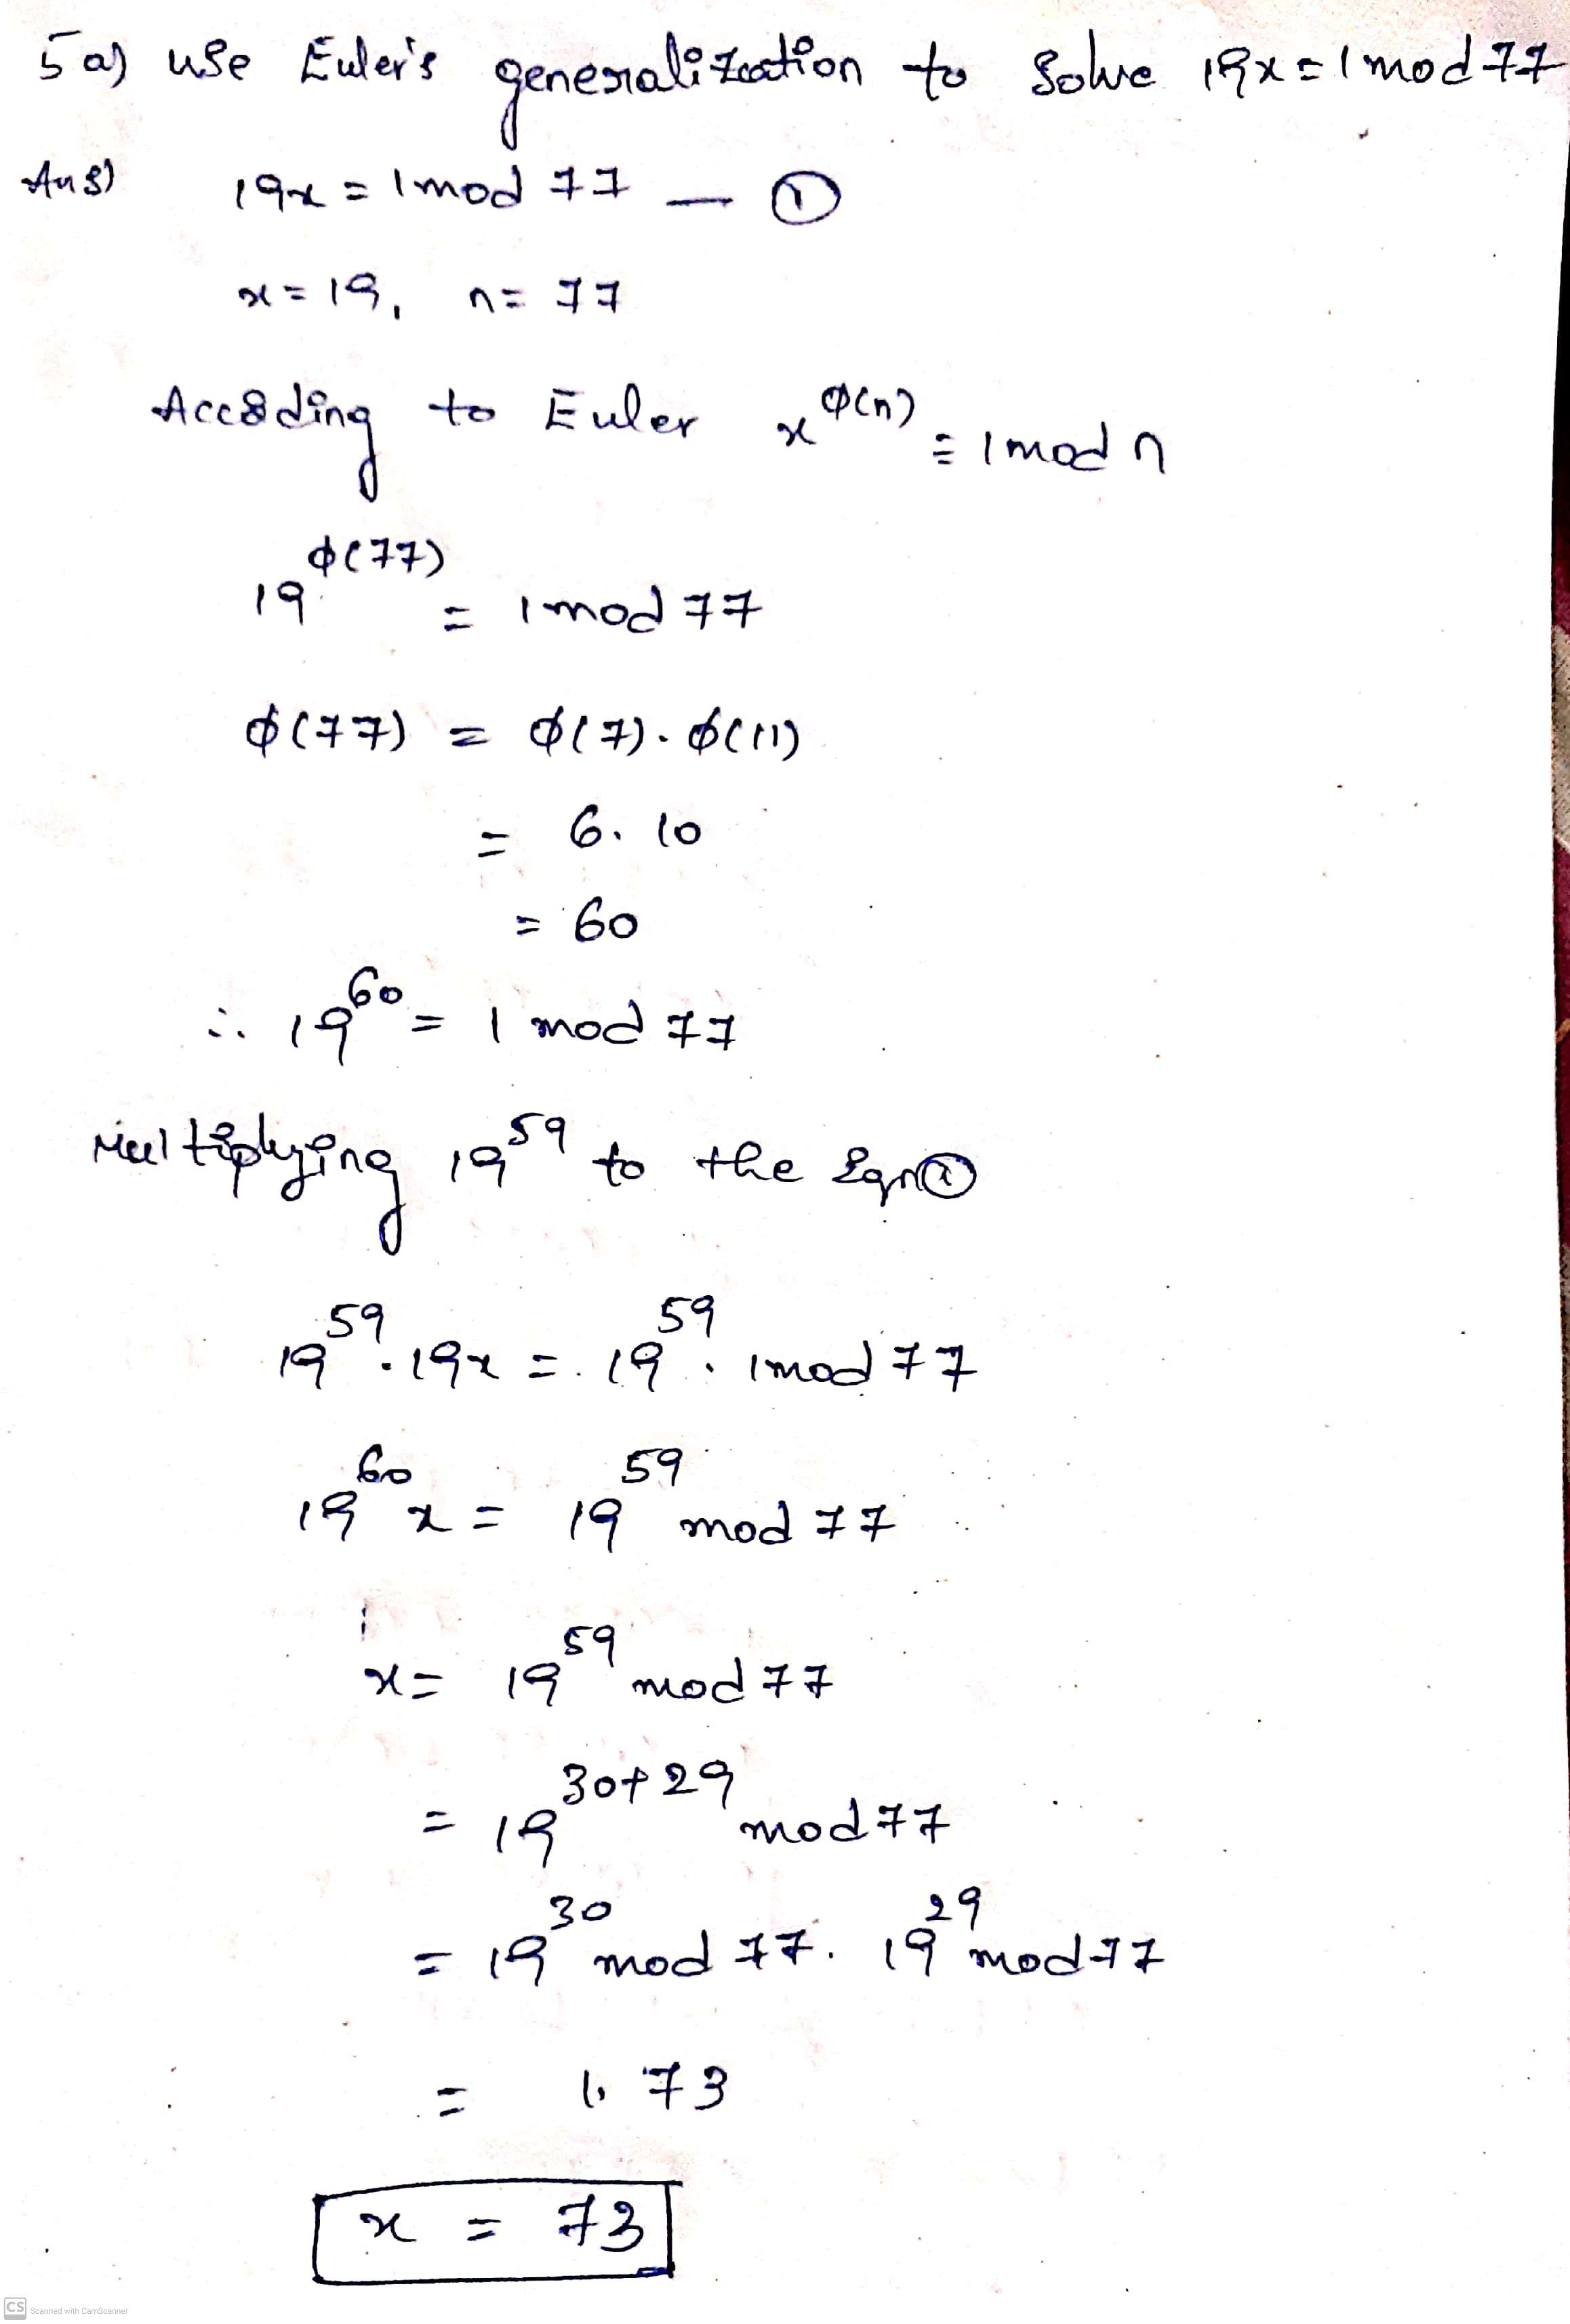 5 a) use Euler's generalization to Solve 19x = 1 mod 77
Ans) 19x = 1 mod 77 — ①
x = 19, n = 77
According to Euler x^ϕ(n) = 1 mod n
19^ϕ(77) = 1 mod 77
ϕ(77) = ϕ(7). ϕ(11)
= 6. 10
= 60
∴ 19^60 = 1 mod 77
Multiplying 19^59 to the Eqn ①
19^59 . 19x = 19^59 . 1 mod 77
19^60 x = 19^59 mod 77
x = 19^59 mod 77
= 19^30+29 mod 77
= 19^30 mod 77. 19^29 mod 77
= 1. 73
x = 73
CS Scanned with CamScanner